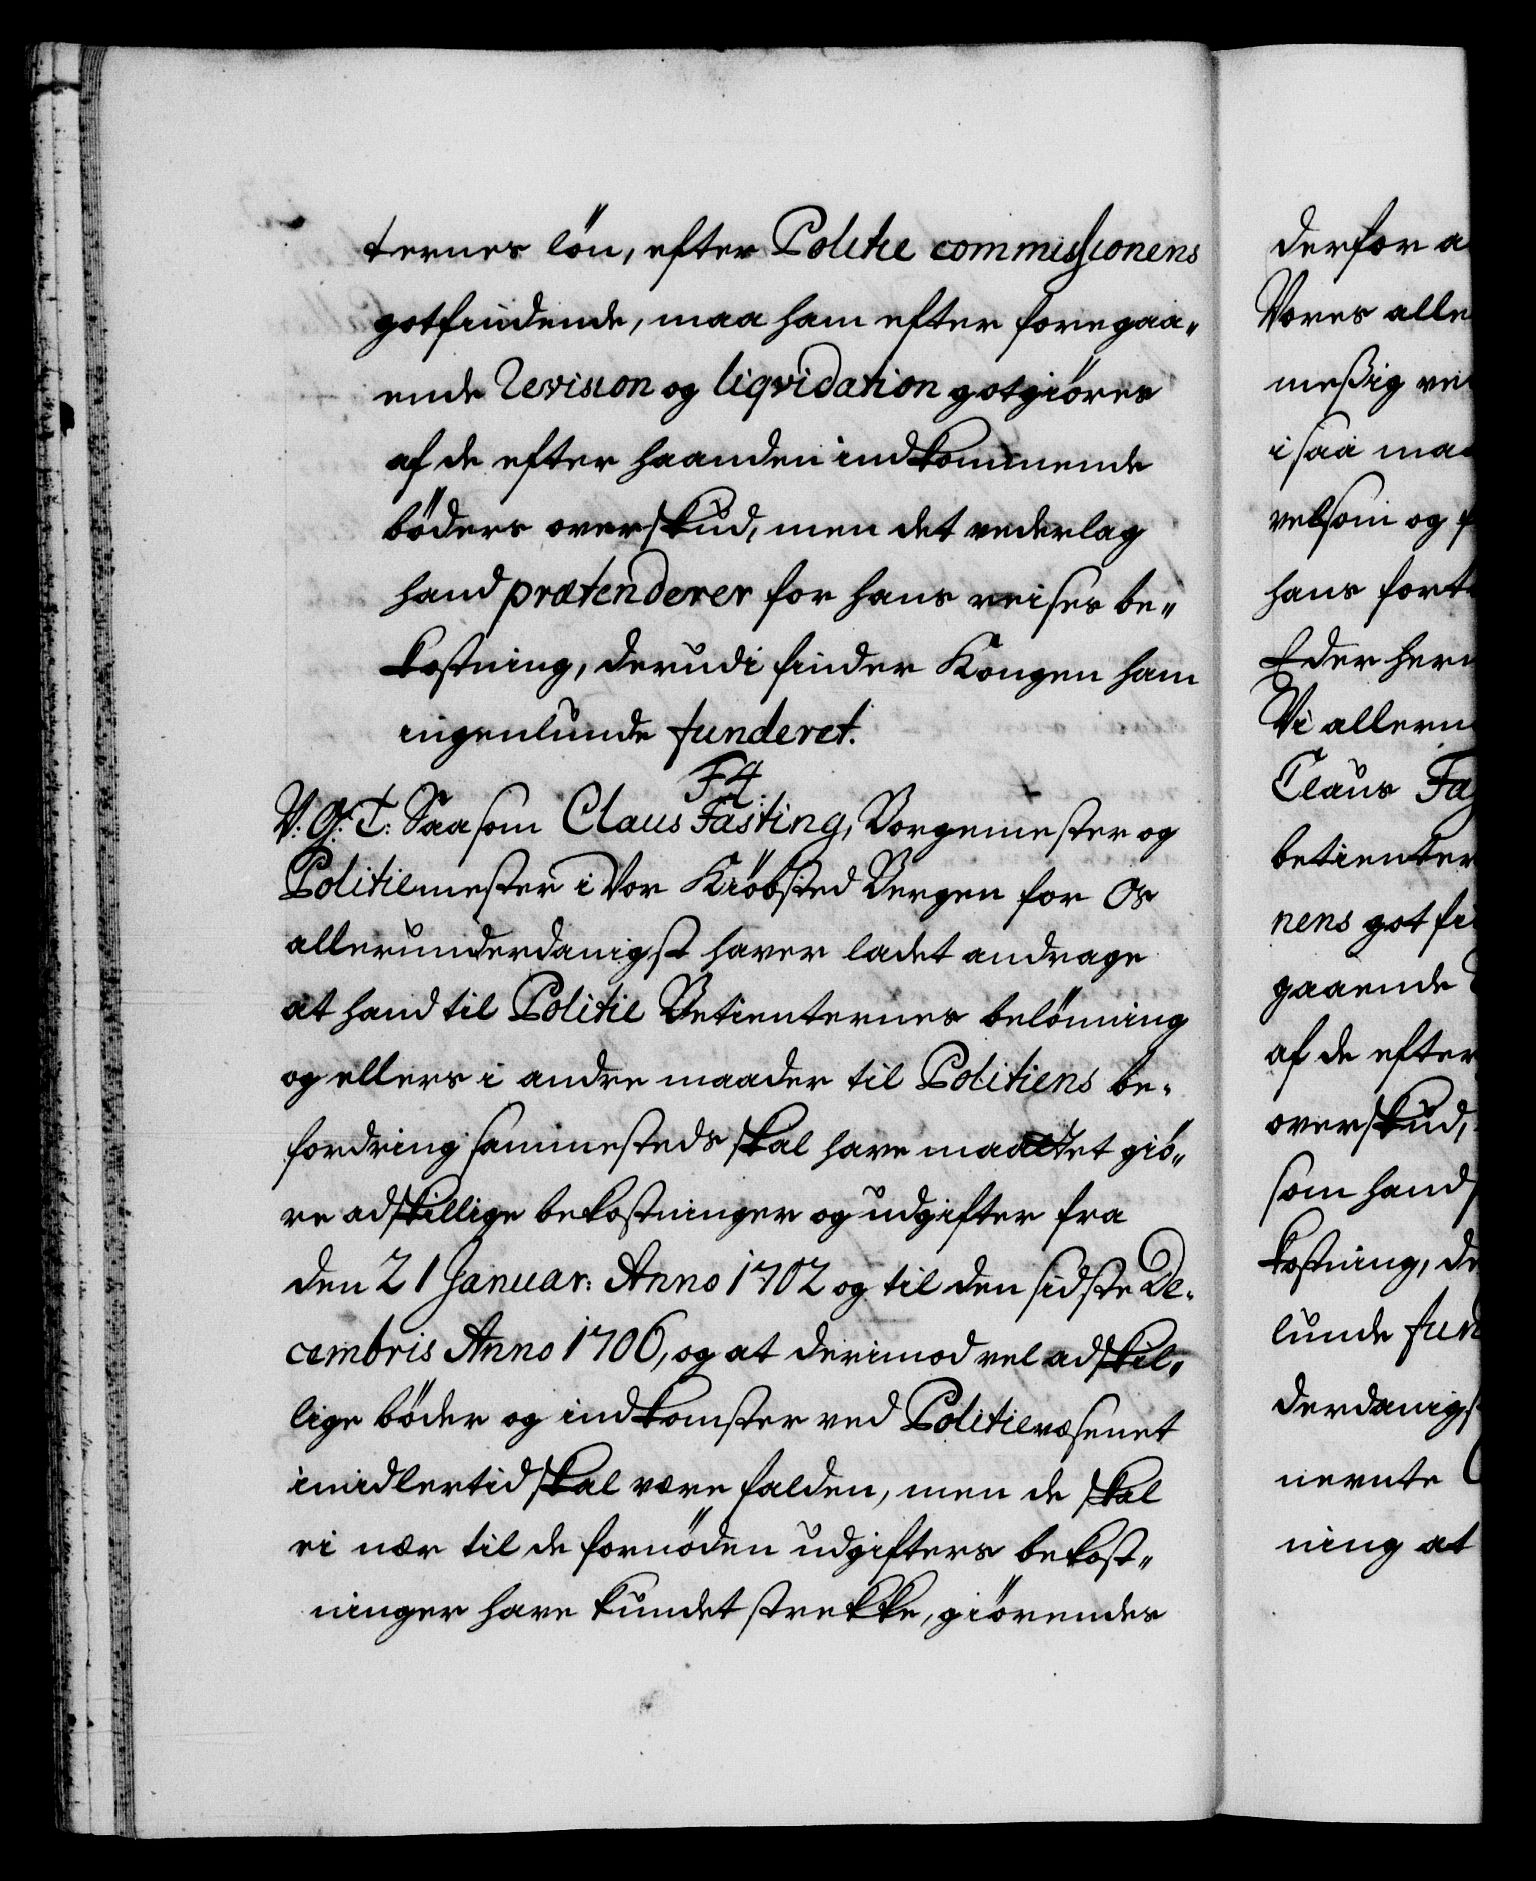 ternes lön, efter Politie commissionens
gotfindende, maa ham efter foregaa„
ende Revision og liqvidation gotgiöres
af de efter haanden indkommende
böders overskud, men det vederlag
hand prætenderer for hans reises be„
kostning, derudi finder Kongen ham
ingenlunde funderet.
F4.
V: G: T: Saasom Claus Fasting, Borgemester og
Politiemester i Vor Kiöbsted Bergen for Os
allerunderdanigst haver ladet andrage
at hand til Politie Betienternes belönning
og ellers i andre maader til Politiens be„
fordring sammesteds skal have maattet giö„
re adskillige bekostninger og udgifter fra
den 21 Januar: Anno 1702 og til den sidste De„
cembris Anno 1706, og at derimod vel adskil„
lige böder og indkomster ved Politievæsenet
imidlertid skal være falden, men de skal
ei nær til de fornöden udgifters bekost„
ninger have kundet strekke, giörendes
derfor a
Vores alle
meßig ve
i saa maa
velsom og f
hans fort
Eder her
Vi allern
Claus Fas
betienter
nens gotfi
gaaende
af de efter
overskud,
som hand
kostning, de
lunde fun
derdanigs
nevnte
ning at